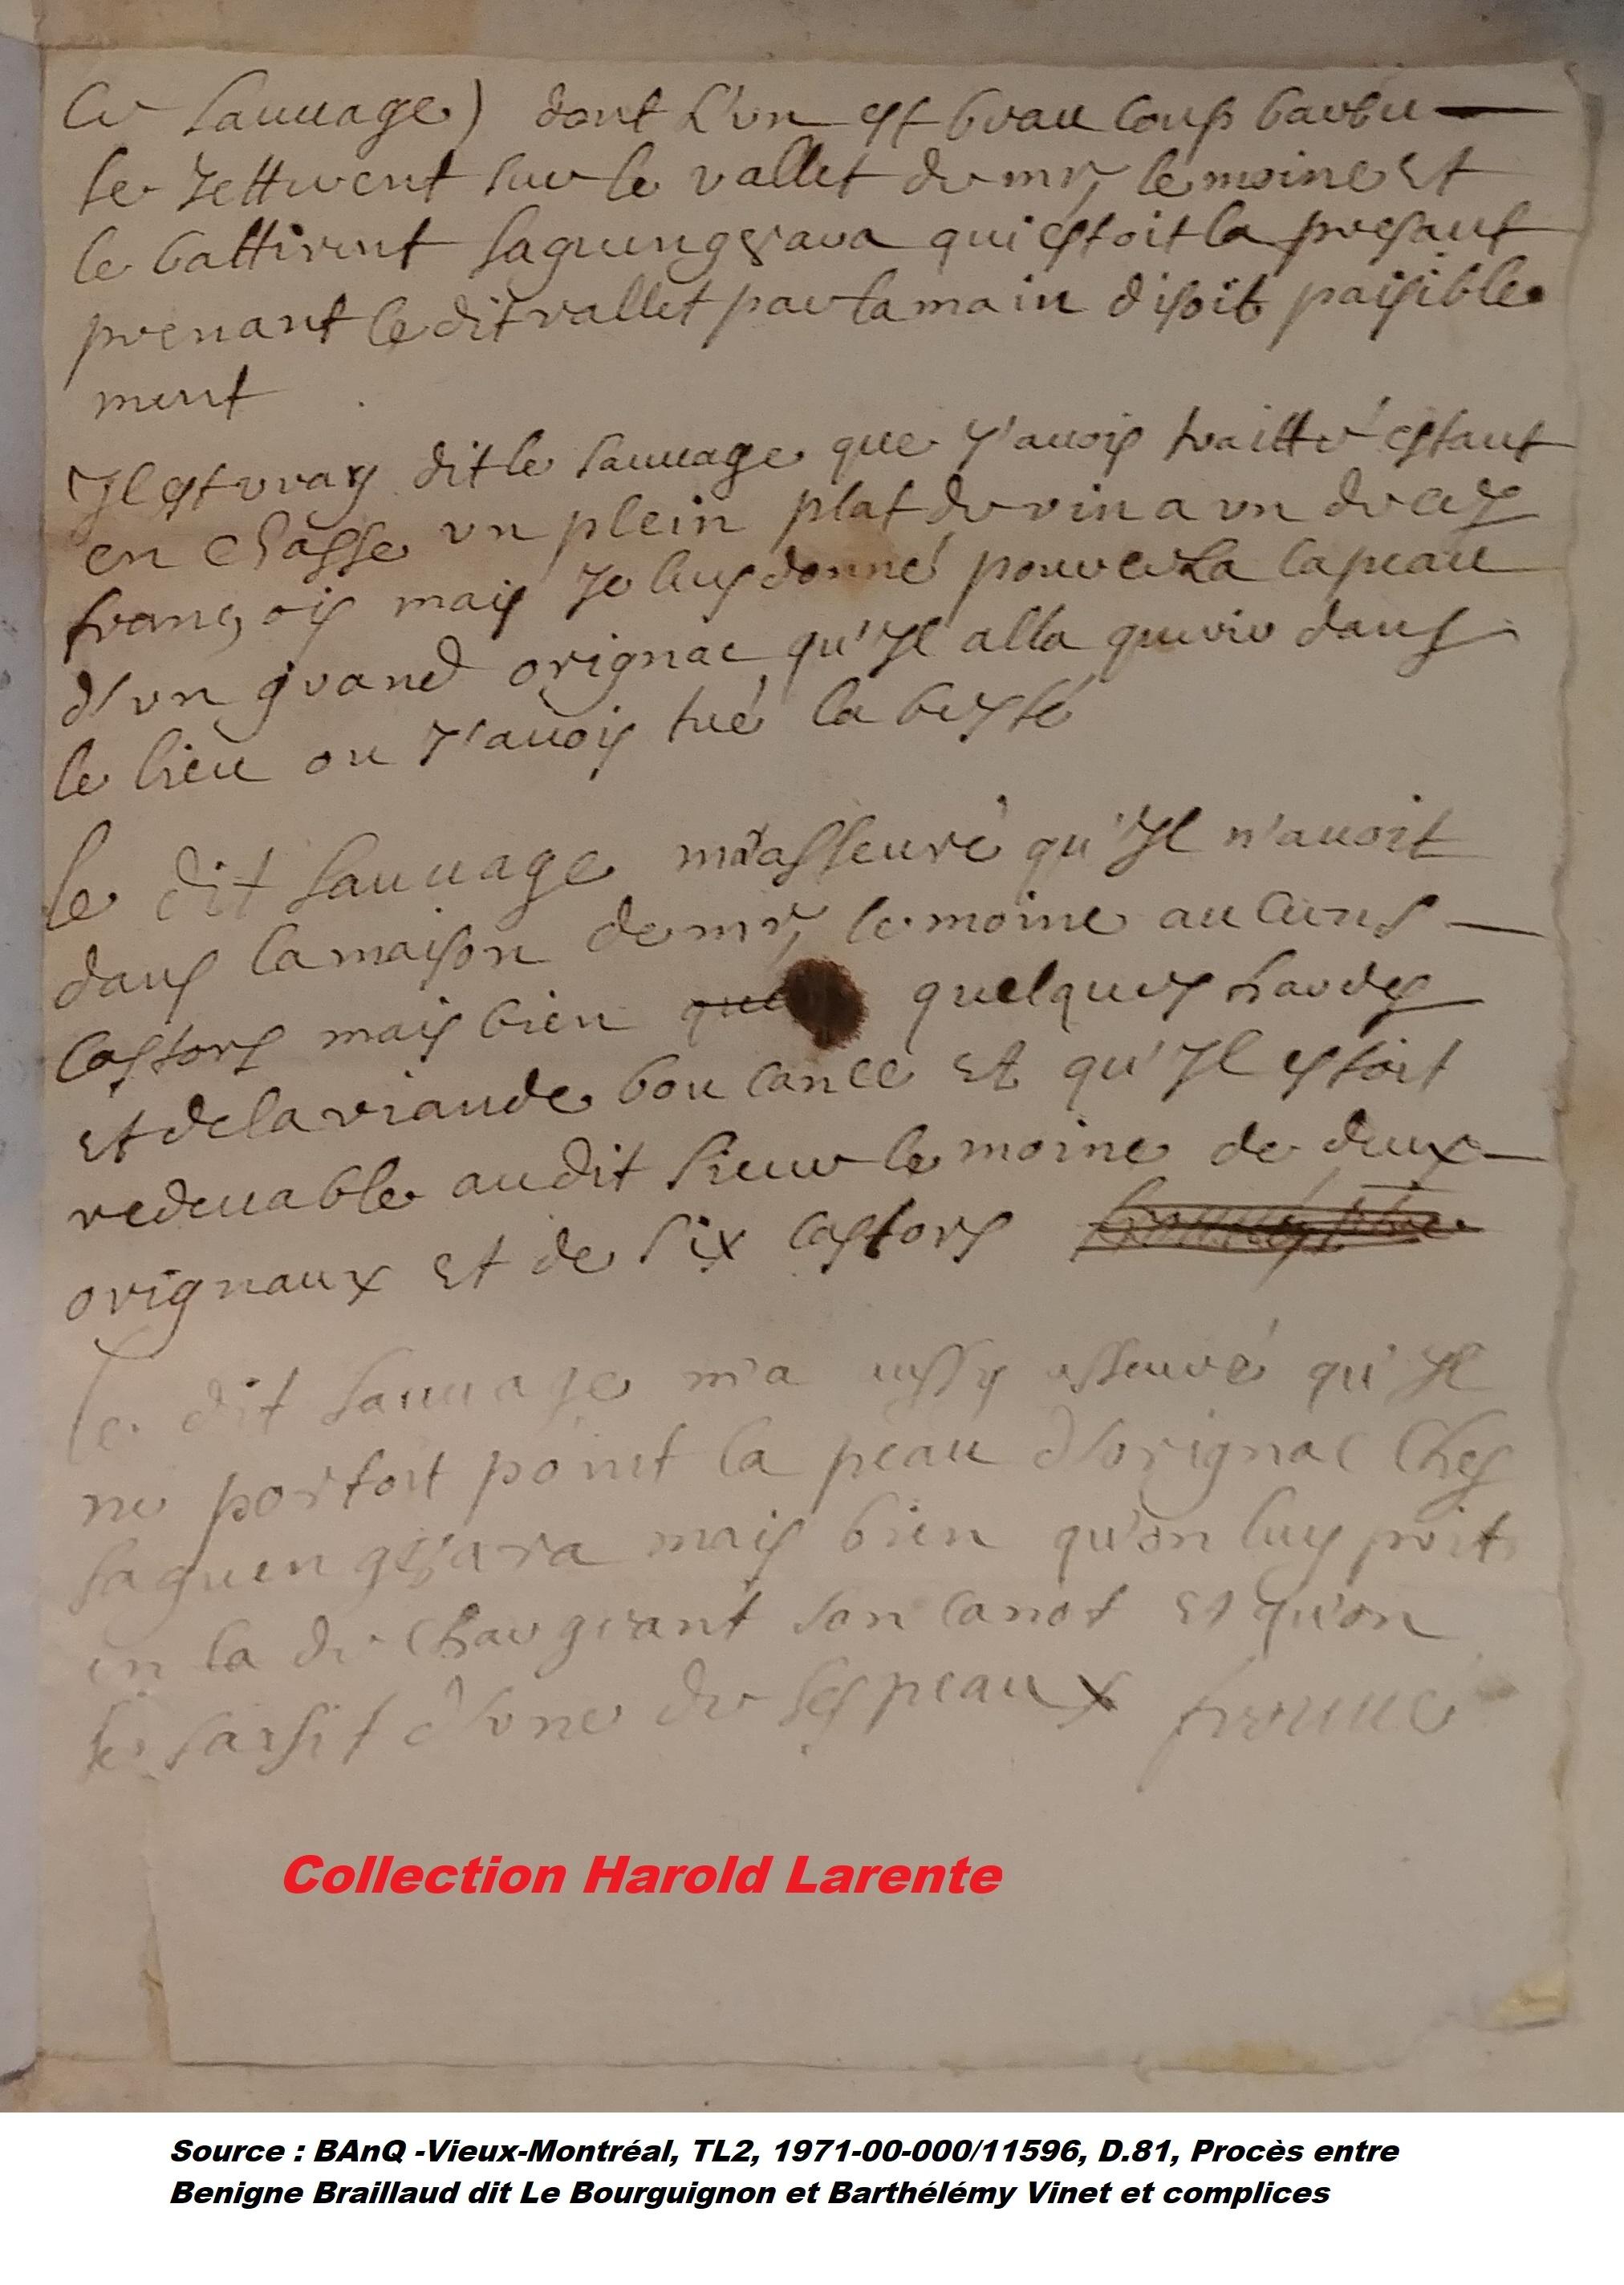 ce sauuage) dont L'vn est beau coup barbu
se Jetterent sur le vallet de mr, le moine Et
le battirent sagueng8ara qui estoit la presant
prenant le dit vallet par la main disoit paisible
ment
Il est vray dit le sauuage que J'auois traitté estant
en chasse vn plein plat de vin a vn de ces
francois mais Je luy donné pour cela la peau
d'vn grand orignac qu'Il alla querir dans
le lieu ou J'auois tué la beste
le dit sauuage m'a asseuré qu'Il n'auoit
dans la maison de mr, le moine aucuns
castors mais bien quelques hardes
Et de la viande boucanee Et qu'Il estoit
redeuable audit sieur le moine de deux
orignaux Et de six castors
le dit sauuage m'a aussy asseuré qu'Il
ne portoit point la peau d'orignac ches
sagueng8ara mais bien qu'on luy prit
en la dechargeant son canot Et qu'on
se saisit d'une de ses peaux
Collection Harold Larente
Source : BAnQ -Vieux-Montréal, TL2, 1971-00-000/11596, D.81, Procès entre
Benigne Braillaud dit Le Bourguignon et Barthélémy Vinet et complices